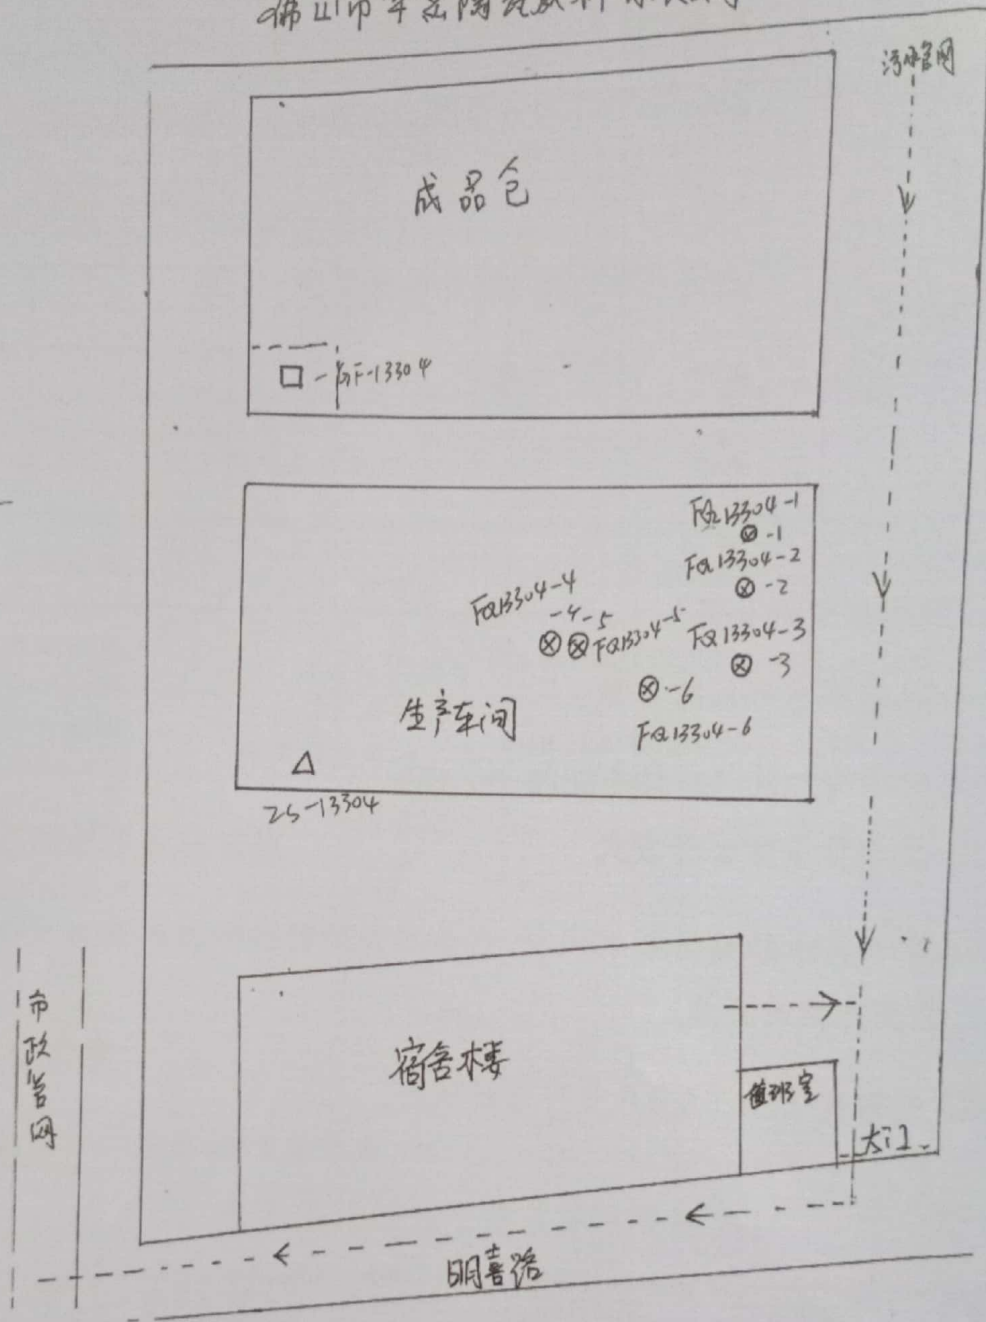 污水管网
成品仓
GF-13304
FQ13304-1
-1
FQ13304-2
-2
FQ13304-4
-4 -5
FQ13304-5
FQ13304-3
-3
-6
FQ13304-6
生产车间
ZS-13304
市政管网
宿舍楼
值班室
大门
明喜路